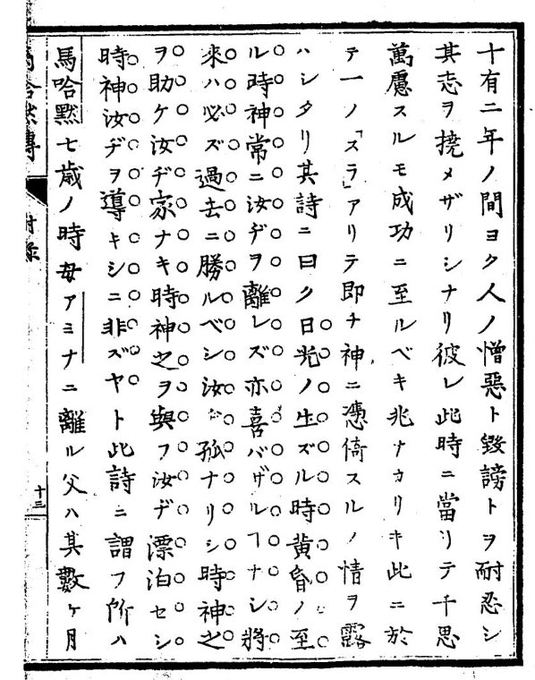 十有二年ノ間ヨク人ノ憎惡ト毀謗トヲ耐忍シ
其志ヲ撓メザリシナリ彼レ此時ニ當リテ千思
萬慮スルモ成功ニ至ルベキ兆ナカリキ此ニ於
テ一ノ「ズラ」アリテ即チ神ニ憑倚スルノ情ヲ露
ハシタリ其詩ニ曰ク日光ノ生ズル時黄昏ノ至
ル時神常ニ汝ヂヲ離レズ亦喜バザルヿナシ將
來ハ必ズ過去ニ勝ルベシ汝ヂ孤ナリシ時神之
ヲ助ケ汝ヂ家ナキ時神之ヲ與フ汝ヂ漂泊セシ
時神汝ヂヲ導キシニ非ズヤト此詩ニ謂フ所ハ
馬哈默七歳ノ時母アミナニ離ル父ハ其數ヶ月
馬哈默傳
附錄
十三